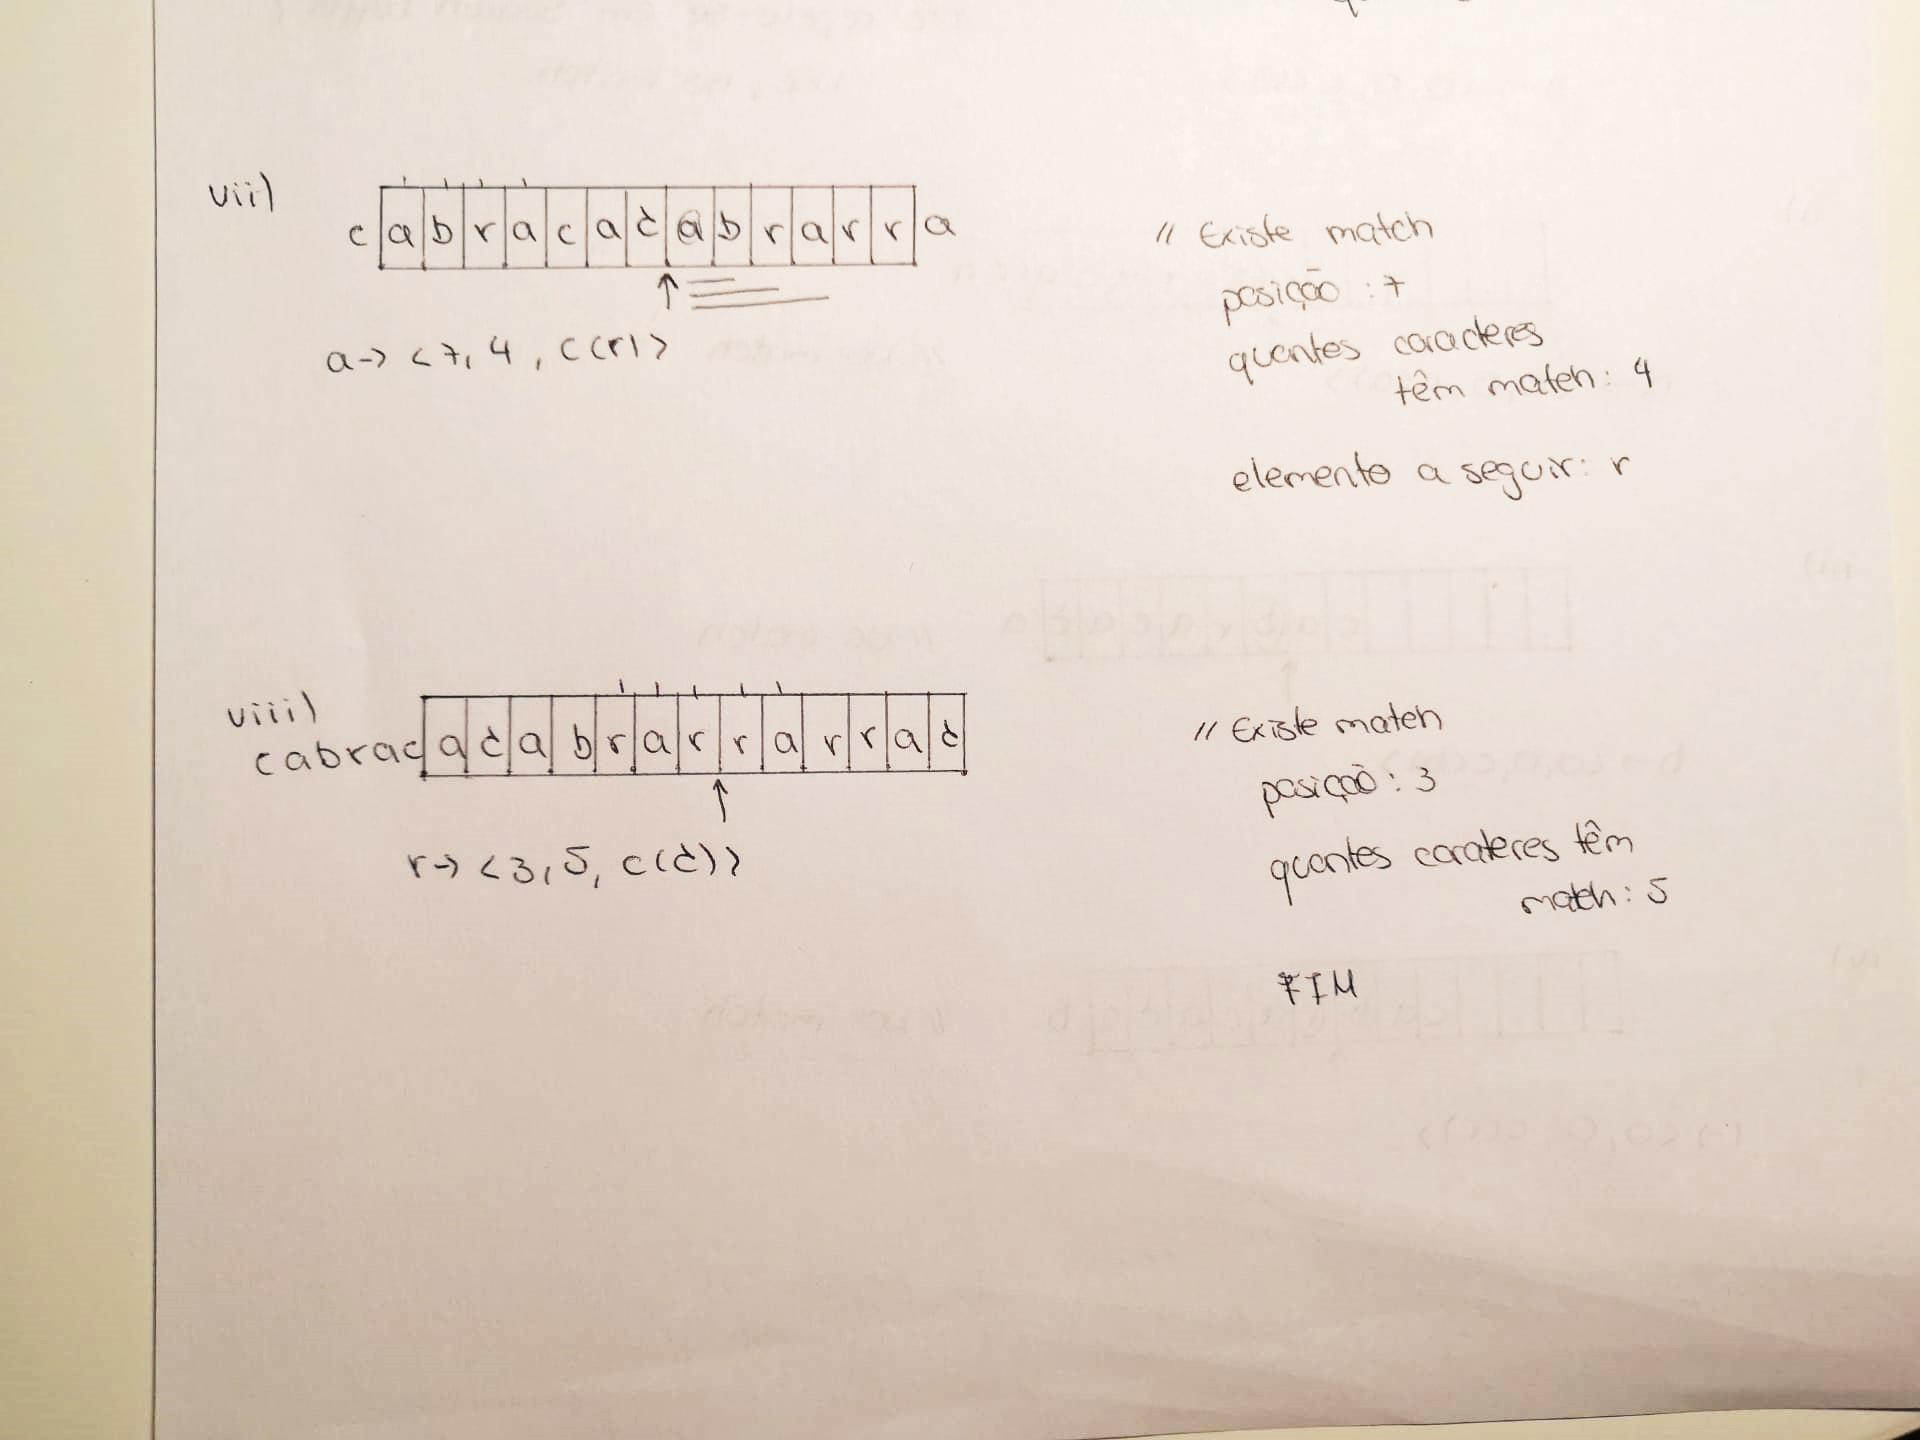 vii)
c a b r a c a d a b r a r r a
a -> <7, 4, c(r)>
// Existe match
posição : 7
quantos caracteres
têm match: 4
elemento a seguir: r
viii)
cabrac a d a b r a r r a r r a d
r -> <3, 5, c(d)>
// Existe match
posição : 3
quantos carateres têm
match: 5
FIM